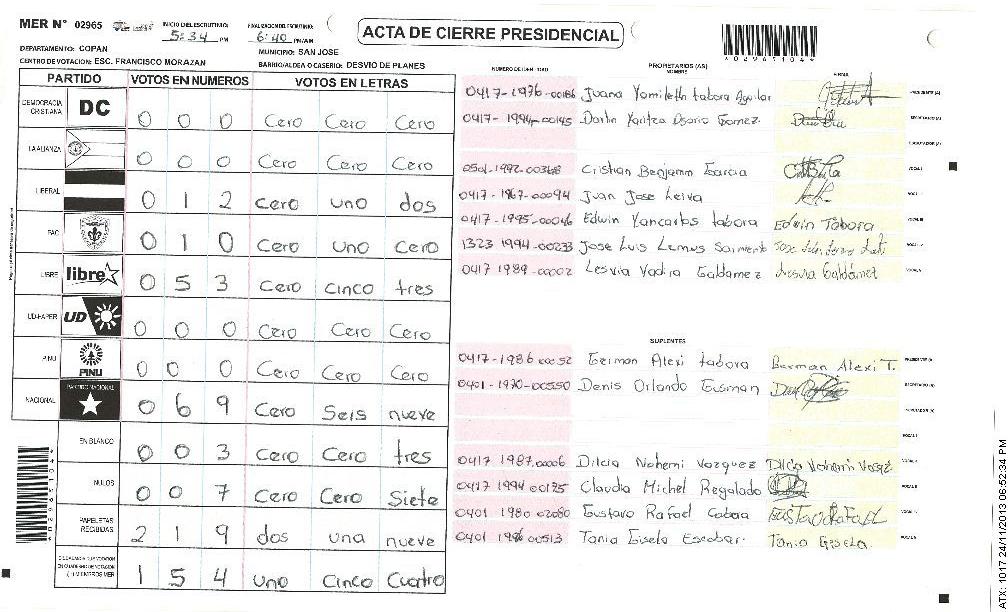 MER Nº 02965
INICIO DEL ESCRUTINIO: 5:34 PM
FINALIZACION DEL ESCRUTINIO: 6:40 PM/AM
ACTA DE CIERRE PRESIDENCIAL
DEPARTAMENTO: COPAN
MUNICIPIO: SAN JOSE
CENTRO DE VOTACION: ESC. FRANCISCO MORAZAN
BARRIO/ALDEA O CASERIO: DESVIO DE PLANES
PARTIDO VOTOS EN NUMEROS VOTOS EN LETRAS
DEMOCRACIA CRISTIANA DC 0 0 0 Cero Cero Cero
LA ALIANZA 0 0 0 Cero Cero Cero
LIBERAL 0 1 2 Cero uno dos
PAC 0 1 0 Cero Uno Cero
LIBRE libre 0 5 3 Cero cinco tres
UD-FAPER UD 0 0 0 Cero Cero Cero
PINU PINU 0 0 0 Cero Cero Cero
NACIONAL PARTIDO NACIONAL 0 6 9 Cero Seis nueve
EN BLANCO 0 0 3 Cero Cero tres
NULOS 0 0 7 Cero Cero Siete
PAPELETAS RECIBIDAS 2 1 9 dos una nueve
1 5 4 uno Cinco Cuatro
PROPIETARIOS (AS)
NOMBRE
FIRMA
0417-1976-00186 Juana Yamileth tabora Aguilar PRESIDENTE (A)
0417-1994-00145 Darlin Yaritza Osorio Gomez SECRETARIO (A)
ESCRUTADOR (A)
0501-1992-00368 Cristian Benjamin Garcia VOCAL I
0417-1967-00094 Juan Jose Leiva
0417-1995-00046 Edwin Yancarlos tabora Edwin Tabora VOCAL III
1323 1994-00233 Jose Luis Lemus Sarmento
0417 1989-00002 Lesvia Yadira Galdamez Lesvia Galdámez
SUPLENTES
0417-1986 00052 German Alexi tabora German Alexi T.
0401-1970-00550 Denis Orlando Gusman
0417 1987.00006 Dilcia Nohemi Vazquez Dilcia Nohemi Vazqz
0417 1994 00125 Claudia Michel Regalado
0401 1980 02080 Gustavo Rafael Cobera GUSTAVO RAFAEL
0401 1986 00513 Tania Gisela Escobar. Tania Gisela.
*02965104*
ATX: 1017 24/11/2013 06:52:34 PM